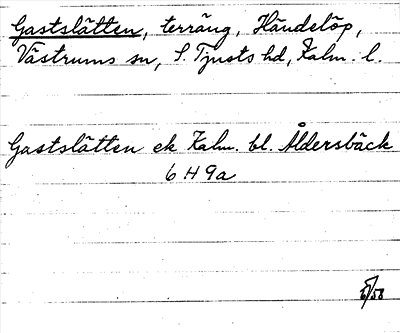 Gastslätten, terräng, Händelöp,
Västrums sn, S. Tjusts hd, Kalm. l.
Gastslätten ek Kalm. bl. Åldersbäck
6 H 9a